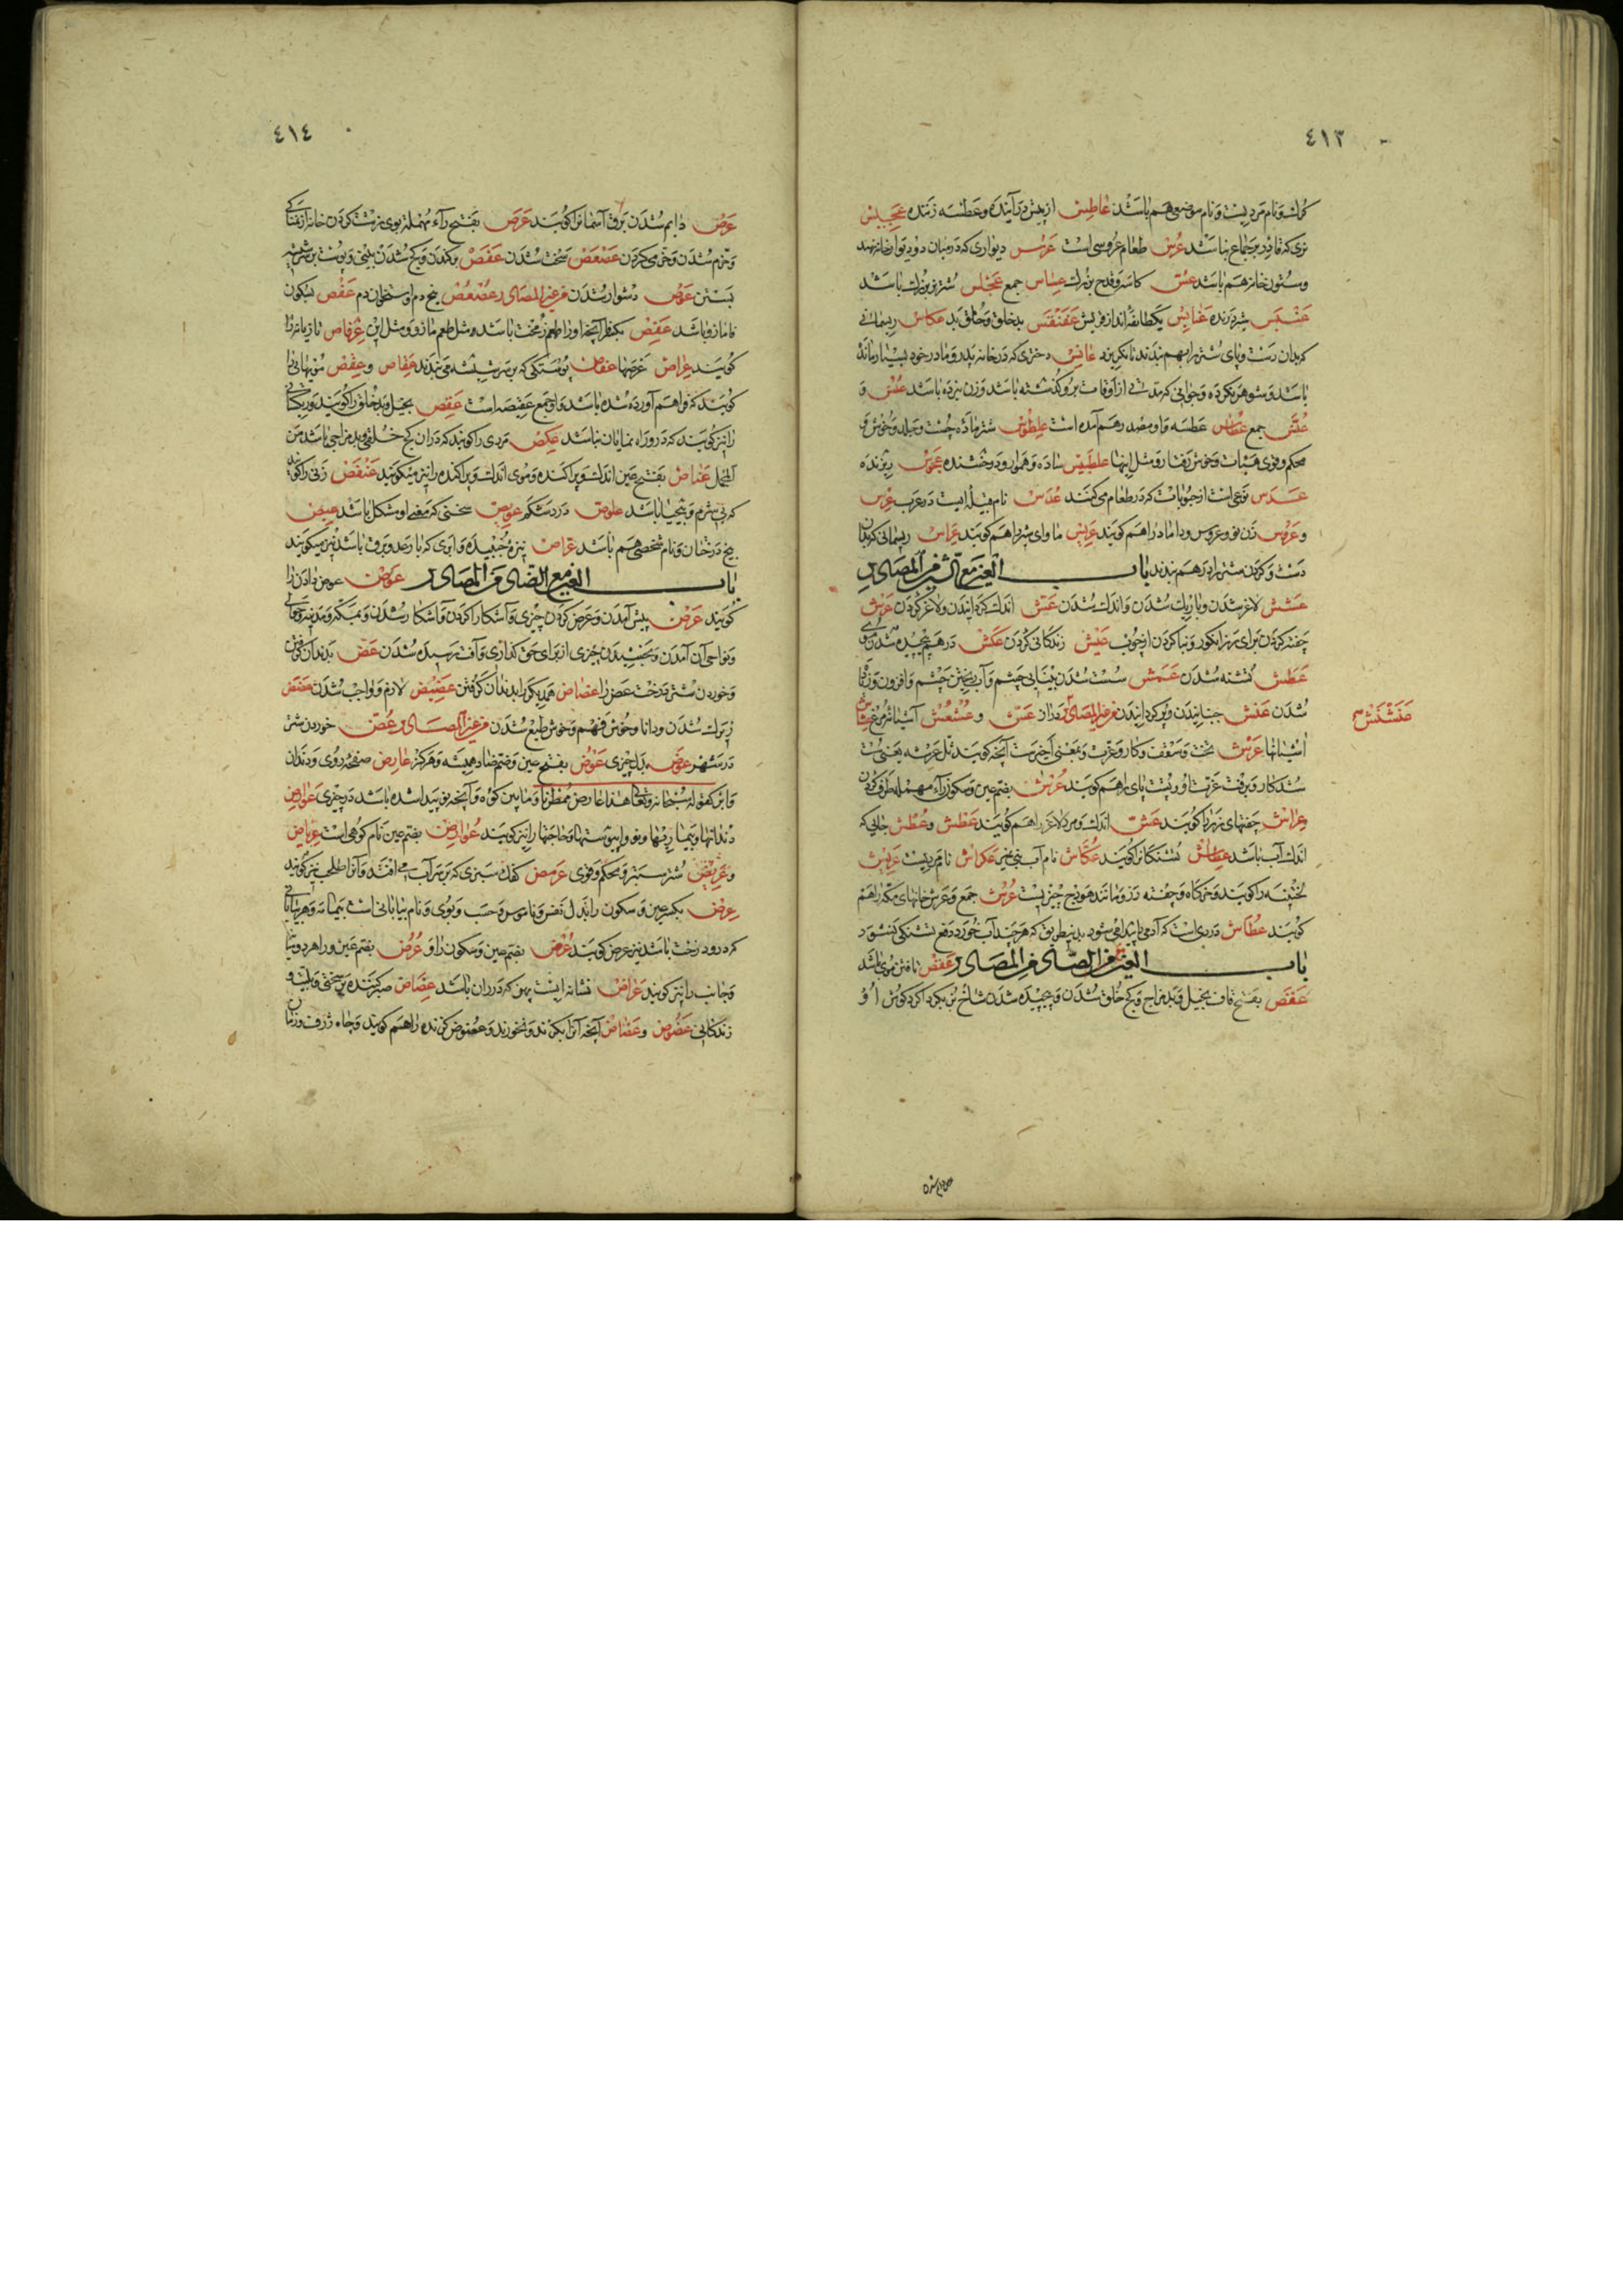 ٤١٣
کمان و نام مردیست و نام موضعی هم باشد عاطس از پیش درآینده و عطسه زننده عجیس
نری که قادر بر جماع نباشد عرس طعام عروسی است عرس دیواری که در میان دو دیوار خانه نهند
و ستون خانه هم باشد عس کاسه و قدح بزرگ عساس جمع عجلس شتر بزرگ باشد
عنبس شیر درنده عنابس یکطایفه‌اند از قریش عفنقس بدخلق و خلق بد عکاس ریسمانی
که بدان دست و پای شتر را بهم بندند تا نگریزد عانس دختری که در خانه پدر و مادر خود بسیار مانده
باشد و شوهر نکرده و جوانی که مدتی از اوقات برو گذشته باشد و زن نبرده باشد عنس و
عنس جمع عطاس عطسه هم آمده است علطوس شتر ماده چست و جلد و خوش و
محکم و قوی هیات و خوش رفتار و مثل اینها علطبیس ساده و هموار و درخشنده عموس
عدس نوعی است از حبوبات که در طعام می‌کنند عدس نام قبیله‌ایست در عرب عرس
و عروس زن نو و عروس و داماد را هم گویند عریس ماوای شیر را هم گویند عراس ریسمانی که بدان
دست و گردن شتر را در هم بندند باب العین مع الشین من المصادر
عشش لاغر شدن و باریک شدن و اندک شدن عش اندک گردانیدن و لاغر کردن عرش
چفته کردن برای رز انگور و بنا کردن از چوب عیش زندگانی کردن عکش در هم پیچیده شدن موی
عطش تشنه شدن عمش سست شدن بینایی چشم و آب ریختن چشم و افزون
شدن عنش جنبانیدن و پر کردانیدن من غیر المصادر عش و عشعش آشیانه مرغ عشاش
آشیانها عرش تخت و سقف و کار و عزت و بمعنی اخیر است آنچه گویند ثل عرشه یعنی سست
شد کار و برفت عزت او و پشت پای را هم گویند عرش بضم عین و سکون راء مهمله طرف گردن
عراش چفتهای رز را گویند عش اندک و مرد لاغر را هم گویند عطش و عطش جایی که
اندک آب باشد عطاش تشنگان را گویند عکاش نام آب بنی نمیر عکراش نام مردیست عریش
و خرگاه و چفته رز و مانند هودج چیزیست عرش جمع و عرش خانهای مکه را هم
گویند عطاش دردی است که آدمی را پیدا می‌شود بدینطریق که هر چند آب خورد دفع تشنگی نشود
باب العین مع الصاد من المصادر عقص تافتن موی باشد
عقص بفتح قاف بخیل و بد مزاج و کج خلق شدن و پیچیده شدن شاخ بز بگرداگرد گوش او
٤١٤
عرص دایم شدن برق آسمان را گویند عرص بفتح راء مهمله بوی زشت کردن خانه از نمناکی
و خرم شدن و خرمی کردن عصعص سخت شدن عفص برکندن و کج شدن بینی و پوست بر سر شیشه
بستن عوص دشوار شدن من غیر المصادر عصعص بیخ دم و استخوان دم عفص بسکون
فا مازو باشد عفص بکسر فا آنچه او را طعم زمخت باشد و مثل طعم مازو و مثل این عرفاص تازیانه را
گویند عراص عرصها عفاص پوستکی که بر سر شیشه می‌بندند عقاص و عقص مویهایی را
گویند که فراهم آورده شده باشد و او جمع عقیصه است عقص بخیل و بدخلق را گویند و ریگی
را نیز گویند که در او راه نمایان نباشد عکص مردی را گویند که در آن کج خلقی و بدمزاجی باشد من
المجمل عناص بفتح عین اندک و پراکنده و موی اندک و پراکنده را نیز میگویند عنفص زنی را گویند
که بی شرم و بی‌حیا باشد علوص درد شکم عویص سخنی که معنی او مشکل باشد عیص
بیخ درختان و نام شخصی هم باشد عراص نیزه جنبیده و ابری که با رعد و برق باشد نیز میگویند
باب العین مع الضاد من المصادر عوض عوض دادن را
گویند عرض پیش آمدن و عرض کردن چیزی و آشکارا کردن و آشکار شدن و بمکه و مدینه و حوالی
و نواحی آن آمدن و بخشیدن چیزی از برای حق گذاری و آفت رسیده شدن عض بدندان گرفتن
و خوردن شتر درخت عض را عضاض همدیگر را بدندان گرفتن عضیض لازم و واجب شدن
زیرک شدن و دانا و خوش فهم و خوش طبع شدن من غیر المصادر عض خوردن شتر
در شهر عوض بدل چیزی عوض بفتح عین و ضم ضاد همیشه و هرگز عارض صفحه روی و دندان
و ابر کقوله سبحانه و تعالی هذا عارض ممطرنا و مابین کوه و آنچه نو پیدا شده باشد در چیزی عوارض
دندانها و بیماریها و نو و حاجتها را نیز گویند عوارض بضم عین نام کوهی است عرباض
و عربض شتر ستبر و محکم و قوی عرمض کفک سبزی که بر سر آب می افتد و آنرا طحلب نیز گویند
عرض بکسر عین و سکون را بدل نفس و ناموس و حسب و بوی و نام بیابانی است بیمامه و هر بیابانی
که در و درخت باشد نیز عرض گویند عرض بضم عین و سکون را و عرض بضم عین و را هر دو میان
و جانب را نیز گویند عراض نشانه ایست پهن که در ران باشد عضاض صبر کننده بر سختی و بلیه و
زندگانی عضوض و عضاض آنچه آنرا بگزند و بخورند و عضوض گزنده را هم گویند و چاه ژرف و زمان